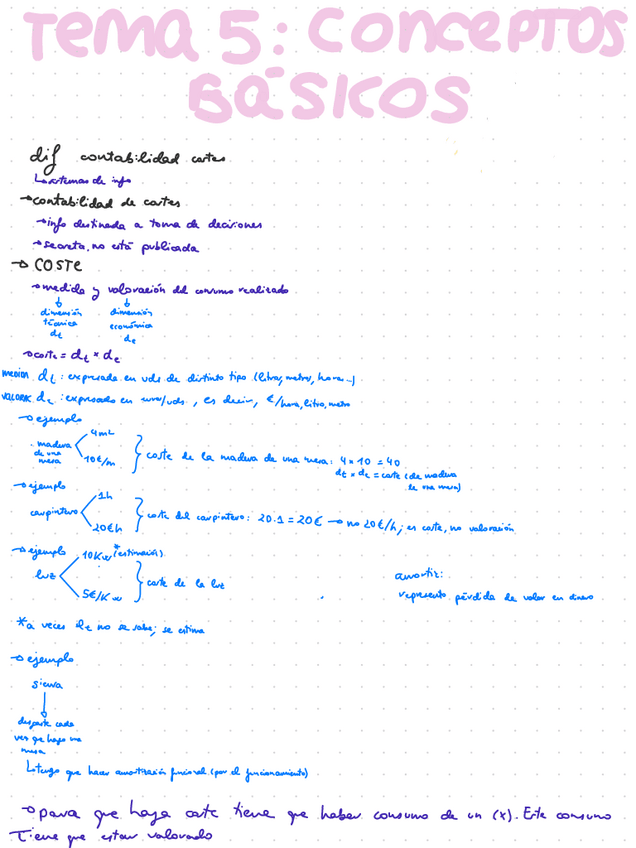 TEMA 5: CONCEPTOS
BÁSICOS
dif contabilidad costes
↳ sistemas de info
→ contabilidad de costes
→ info destinada a toma de decisiones
→ secreta, no está publicada
→ COSTE
→ medida y valoración del consumo realizado
dimensión técnica dt
dimensión económica de
→ coste = dt × de
medición dt : expresada en uds de distinto tipo (litro, metro, hora...)
valorar de : expresado en euro/uds, es decir, €/hora, litro, metro
→ ejemplo
madera de una mesa
4m²
10€/m
coste de la madera de una mesa: 4 × 10 = 40
dt × de = coste (de madera de una mesa)
→ ejemplo
carpintero
1h
20€h
coste del carpintero: 20.1 = 20€ → no 20€/h; es coste, no valoración
→ ejemplo
luz
10Kw *(estimación)
5€/Kw
coste de la luz
amortiz:
represento pérdida de valor en dinero
*a veces dt no se sabe; se estima
→ ejemplo
sierra
desgaste cada
vez que hago una
mesa
↳ tengo que hacer amortización funcional (por el funcionamiento)
→ para que haya coste tiene que haber consumo de un (x). Este consumo
tiene que estar valorado